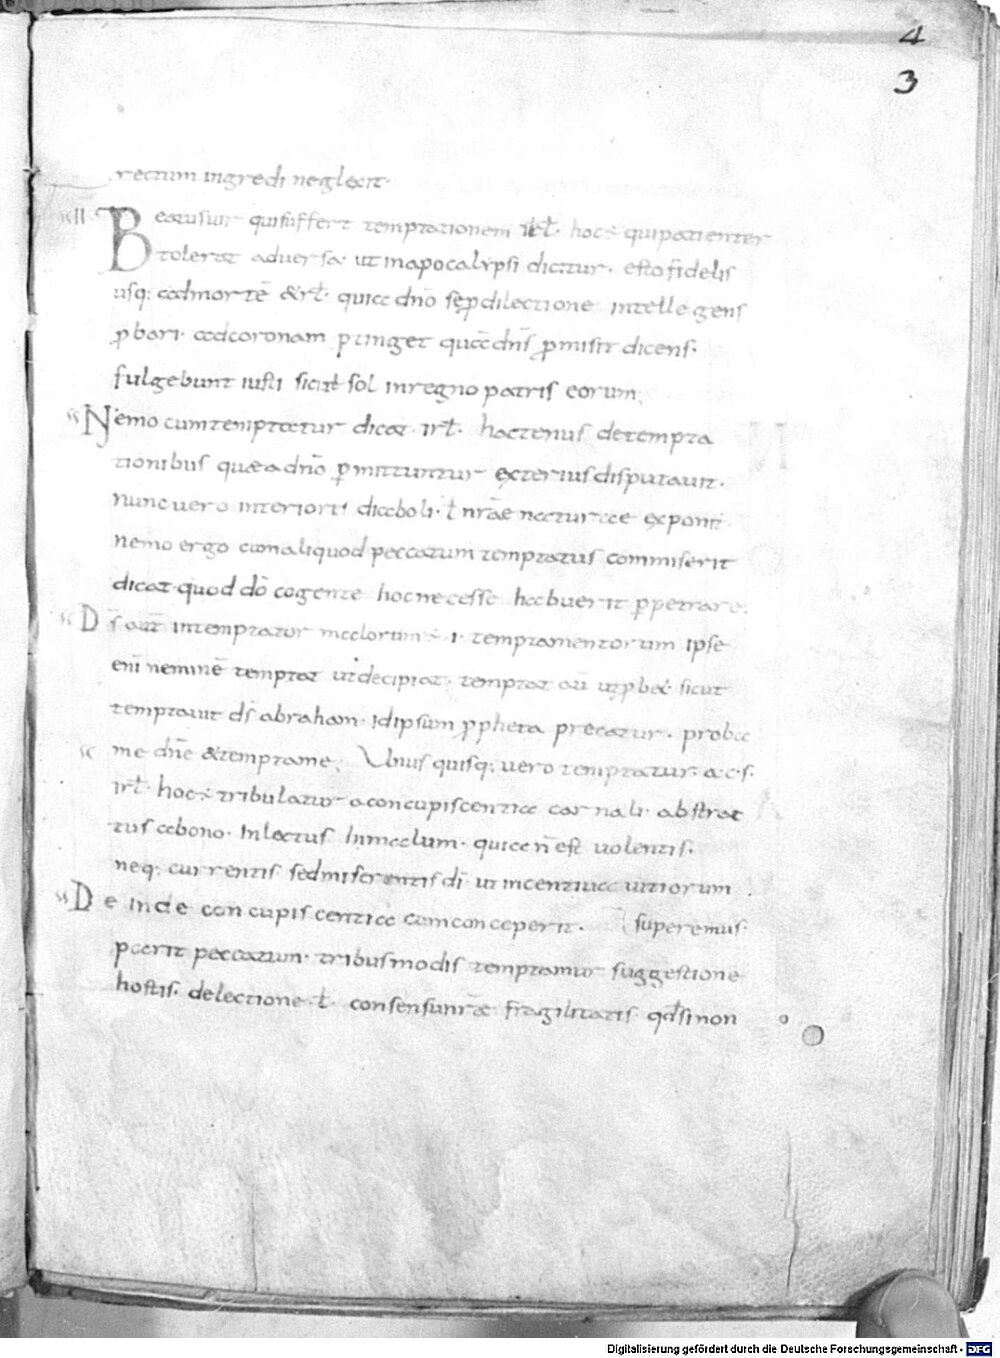 4
3
rectum ingredi neglexit·
II Beatus uir qui suffert temptationem irł· hoc ÷ qui patienter
tolerat aduersa· ut in apocalypsi dicitur· esto fidelis
usq; ad mortē &rł· quia dn̄o sēp dilectione intellegens
ꝓbari· ad coronam ptinget quā dn̄s ꝓmisit dicens·
fulgebunt iusti sicut sol in regno patris eorum;
Nemo cum temptatur dicat irł· hactenus de tempta
tionibus quae a dn̄o pmittuntur exterius disputauit·
nunc uero interioris diaboli· ł nrāe naturae exponit
nemo ergo cum aliquod peccatum temptatus commiserit
dicat quod dō cogente hoc necesse habuerit ppetrare·
Ds̄ aut̄ intemptator malorum ÷ i· temptamentorum ipse
eni neminē temptat ut decipiat· temptat aū ut ꝓbet sicut
temptauit ds̄ abraham· Id ipsum ꝓpheta precatur· proba
me dn̄e & tempta me; Unus quisq; uero temptatur· a·c·s·
irł· hoc ÷ tribulatur a concupiscentia carnali· abstrac
tus a bono· Inlectus In malum· quia n̄ est uolentis·
neq; currentis sed miserentis dī· ut incentiua uitiorum
De inde concupiscentia cum conceperit· superemus·
parit peccatum· tribus modis temptamur suggestione
hostis· delectione· ł· consensu nrāe fragilitatis qđ si non
Digitalisierung gefördert durch die Deutsche Forschungsgemeinschaft - DFG